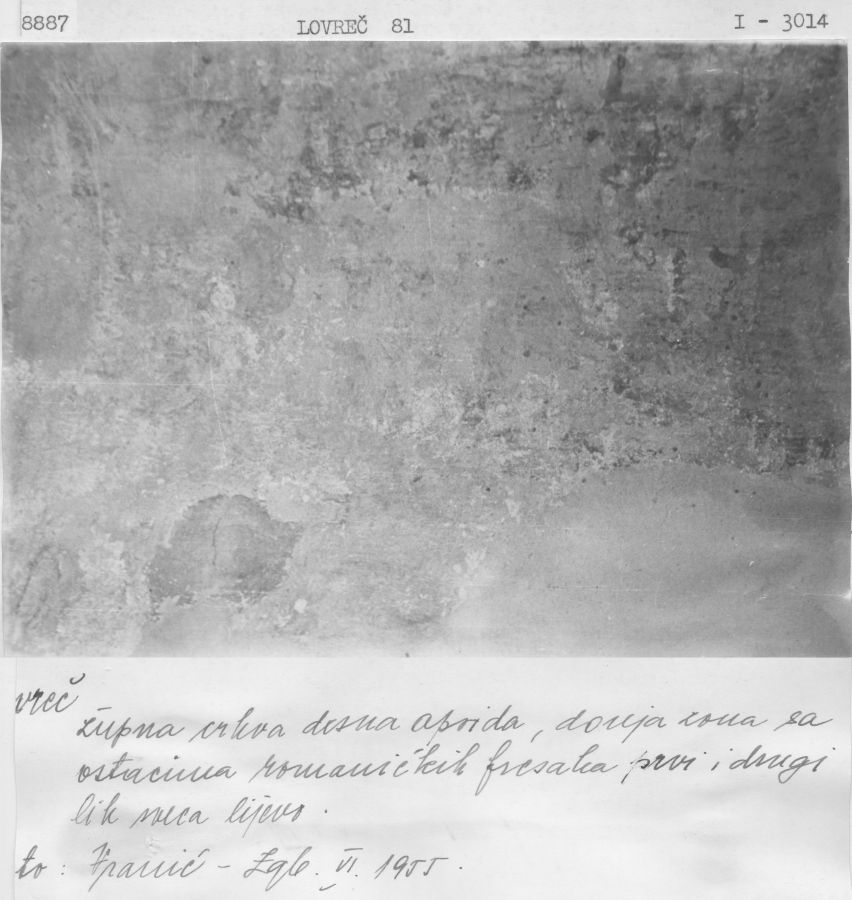 8887 LOVREČ 81 I - 3014
vreč
župna crkva desna apsida, donja zona sa
ostacima romaničkih fresaka prvi i drugi
lik sveca lijevo.
to: Vranić - Zgb. VI. 1955.